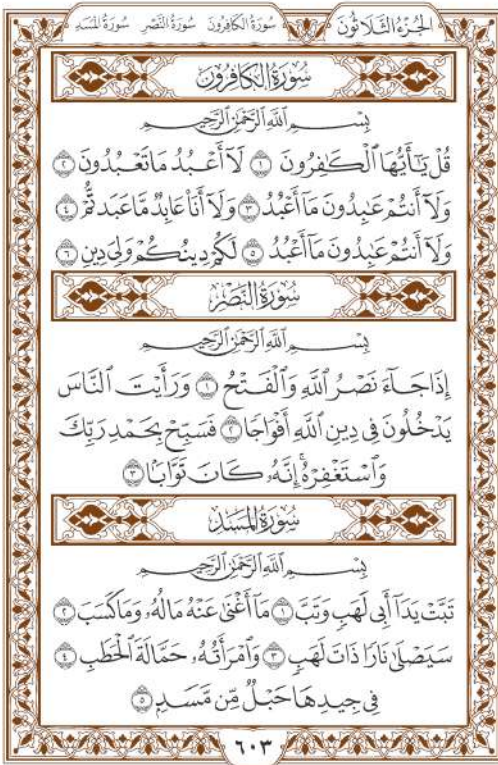 الجُزْءُ الثَّلَاثُونَ سُورَةُ الكَافِرُونَ سُورَةُ النَّصْرِ سُورَةُ المَسَدِ
سُورَةُ الكَافِرُونَ
بِسْمِ ٱللَّهِ ٱلرَّحْمَٰنِ ٱلرَّحِيمِ
قُلْ يَٰٓأَيُّهَا ٱلْكَٰفِرُونَ ١ لَآ أَعْبُدُ مَا تَعْبُدُونَ ٢
وَلَآ أَنتُمْ عَٰبِدُونَ مَآ أَعْبُدُ ٣ وَلَآ أَنَا۠ عَابِدٌ مَّا عَبَدتُّمْ ٤
وَلَآ أَنتُمْ عَٰبِدُونَ مَآ أَعْبُدُ ٥ لَكُمْ دِينُكُمْ وَلِيَ دِينِ ٦
سُورَةُ النَّصْرِ
بِسْمِ ٱللَّهِ ٱلرَّحْمَٰنِ ٱلرَّحِيمِ
إِذَا جَآءَ نَصْرُ ٱللَّهِ وَٱلْفَتْحُ ١ وَرَأَيْتَ ٱلنَّاسَ
يَدْخُلُونَ فِي دِينِ ٱللَّهِ أَفْوَاجًا ٢ فَسَبِّحْ بِحَمْدِ رَبِّكَ
وَٱسْتَغْفِرْهُۚ إِنَّهُۥ كَانَ تَوَّابًۢا ٣
سُورَةُ المَسَدِ
بِسْمِ ٱللَّهِ ٱلرَّحْمَٰنِ ٱلرَّحِيمِ
تَبَّتْ يَدَآ أَبِي لَهَبٍ وَتَبَّ ١ مَآ أَغْنَىٰ عَنْهُ مَالُهُۥ وَمَا كَسَبَ ٢
سَيَصْلَىٰ نَارًا ذَاتَ لَهَبٍ ٣ وَٱمْرَأَتُهُۥ حَمَّالَةَ ٱلْحَطَبِ ٤
فِي جِيدِهَا حَبْلٌ مِّن مَّسَدٍۭ ٥
٦٠٣